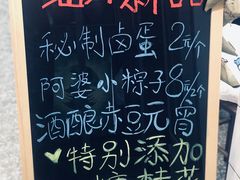 秘制卤蛋 2元/个
阿婆小粽子 8元/2个
酒酿赤豆元宵
✓特别添加
桂花